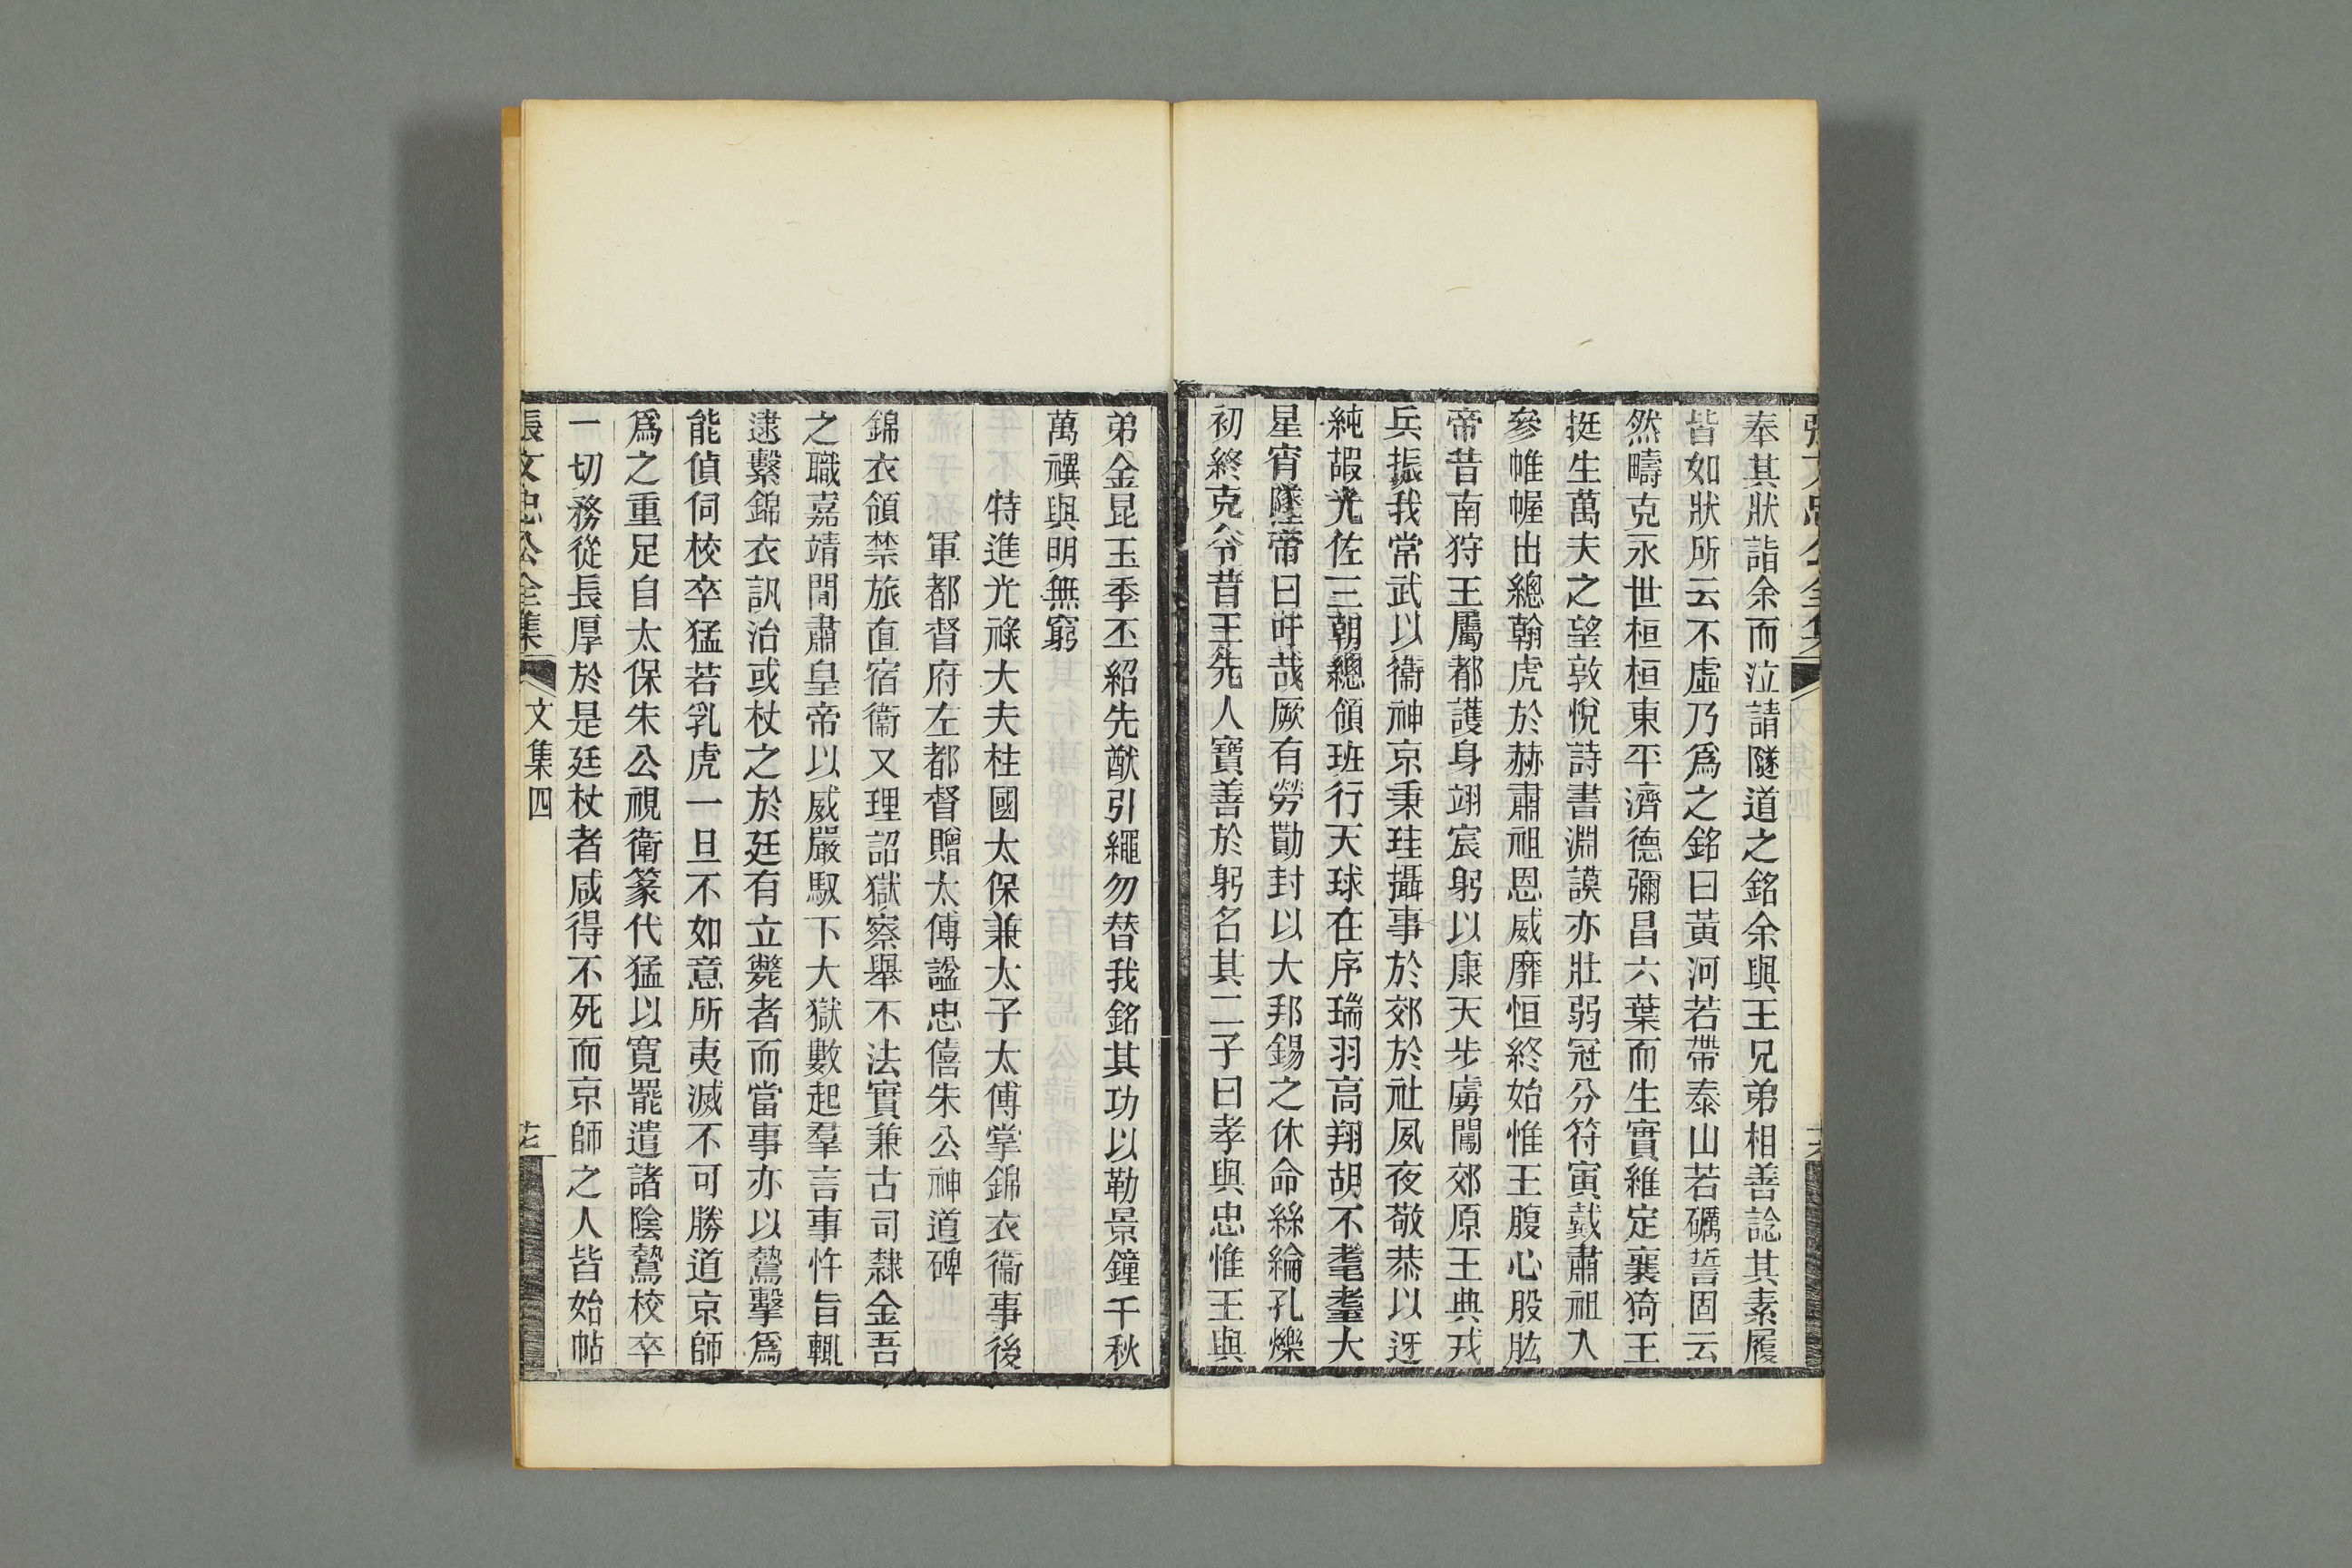 張文忠公全集
奉其狀詣余而泣請隧道之銘余與王兄弟相善諗其素履
皆如狀所云不虛乃爲之銘曰黃河若帶泰山若礪誓固云
然疇克永世桓桓東平濟德彌昌六葉而生實維定襄猗王
挺生萬夫之望敦悅詩書淵謨亦壯弱冠分符寅戴肅祖入
參帷幄出總翰虎於赫肅祖恩威靡恒終始惟王腹心股肱
帝昔南狩王屬都護身翊宸躬以康天步虜闖郊原王典戎
兵振我常武以衞神京秉珪攝事於郊於社夙夜敬恭以迓
純嘏光佐三朝總領班行天球在序瑞羽高翔胡不耄耋大
星宵墜帝曰吁哉厥有勞勩封以大邦錫之休命絲綸孔爍
初終克令昔王先人寶善於躬名其二子曰孝與忠惟王與
弟金昆玉季丕紹先猷引繩勿替我銘其功以勒景鐘千秋
萬禩與明無窮
特進光祿大夫柱國太保兼太子太傅掌錦衣衞事後
軍都督府左都督贈太傅諡忠僖朱公神道碑
錦衣領禁旅直宿衞又理詔獄察舉不法實兼古司隸金吾
之職嘉靖間肅皇帝以威嚴馭下大獄數起羣言事忤旨輒
逮繫錦衣訊治或杖之於廷有立斃者而當事亦以鷙擊爲
能偵伺校卒猛若乳虎一旦不如意所夷滅不可勝道京師
爲之重足自太保朱公視衛篆代猛以寬罷遣諸陰鷙校卒
一切務從長厚於是廷杖者咸得不死而京師之人皆始帖
張文忠公全集
文集四